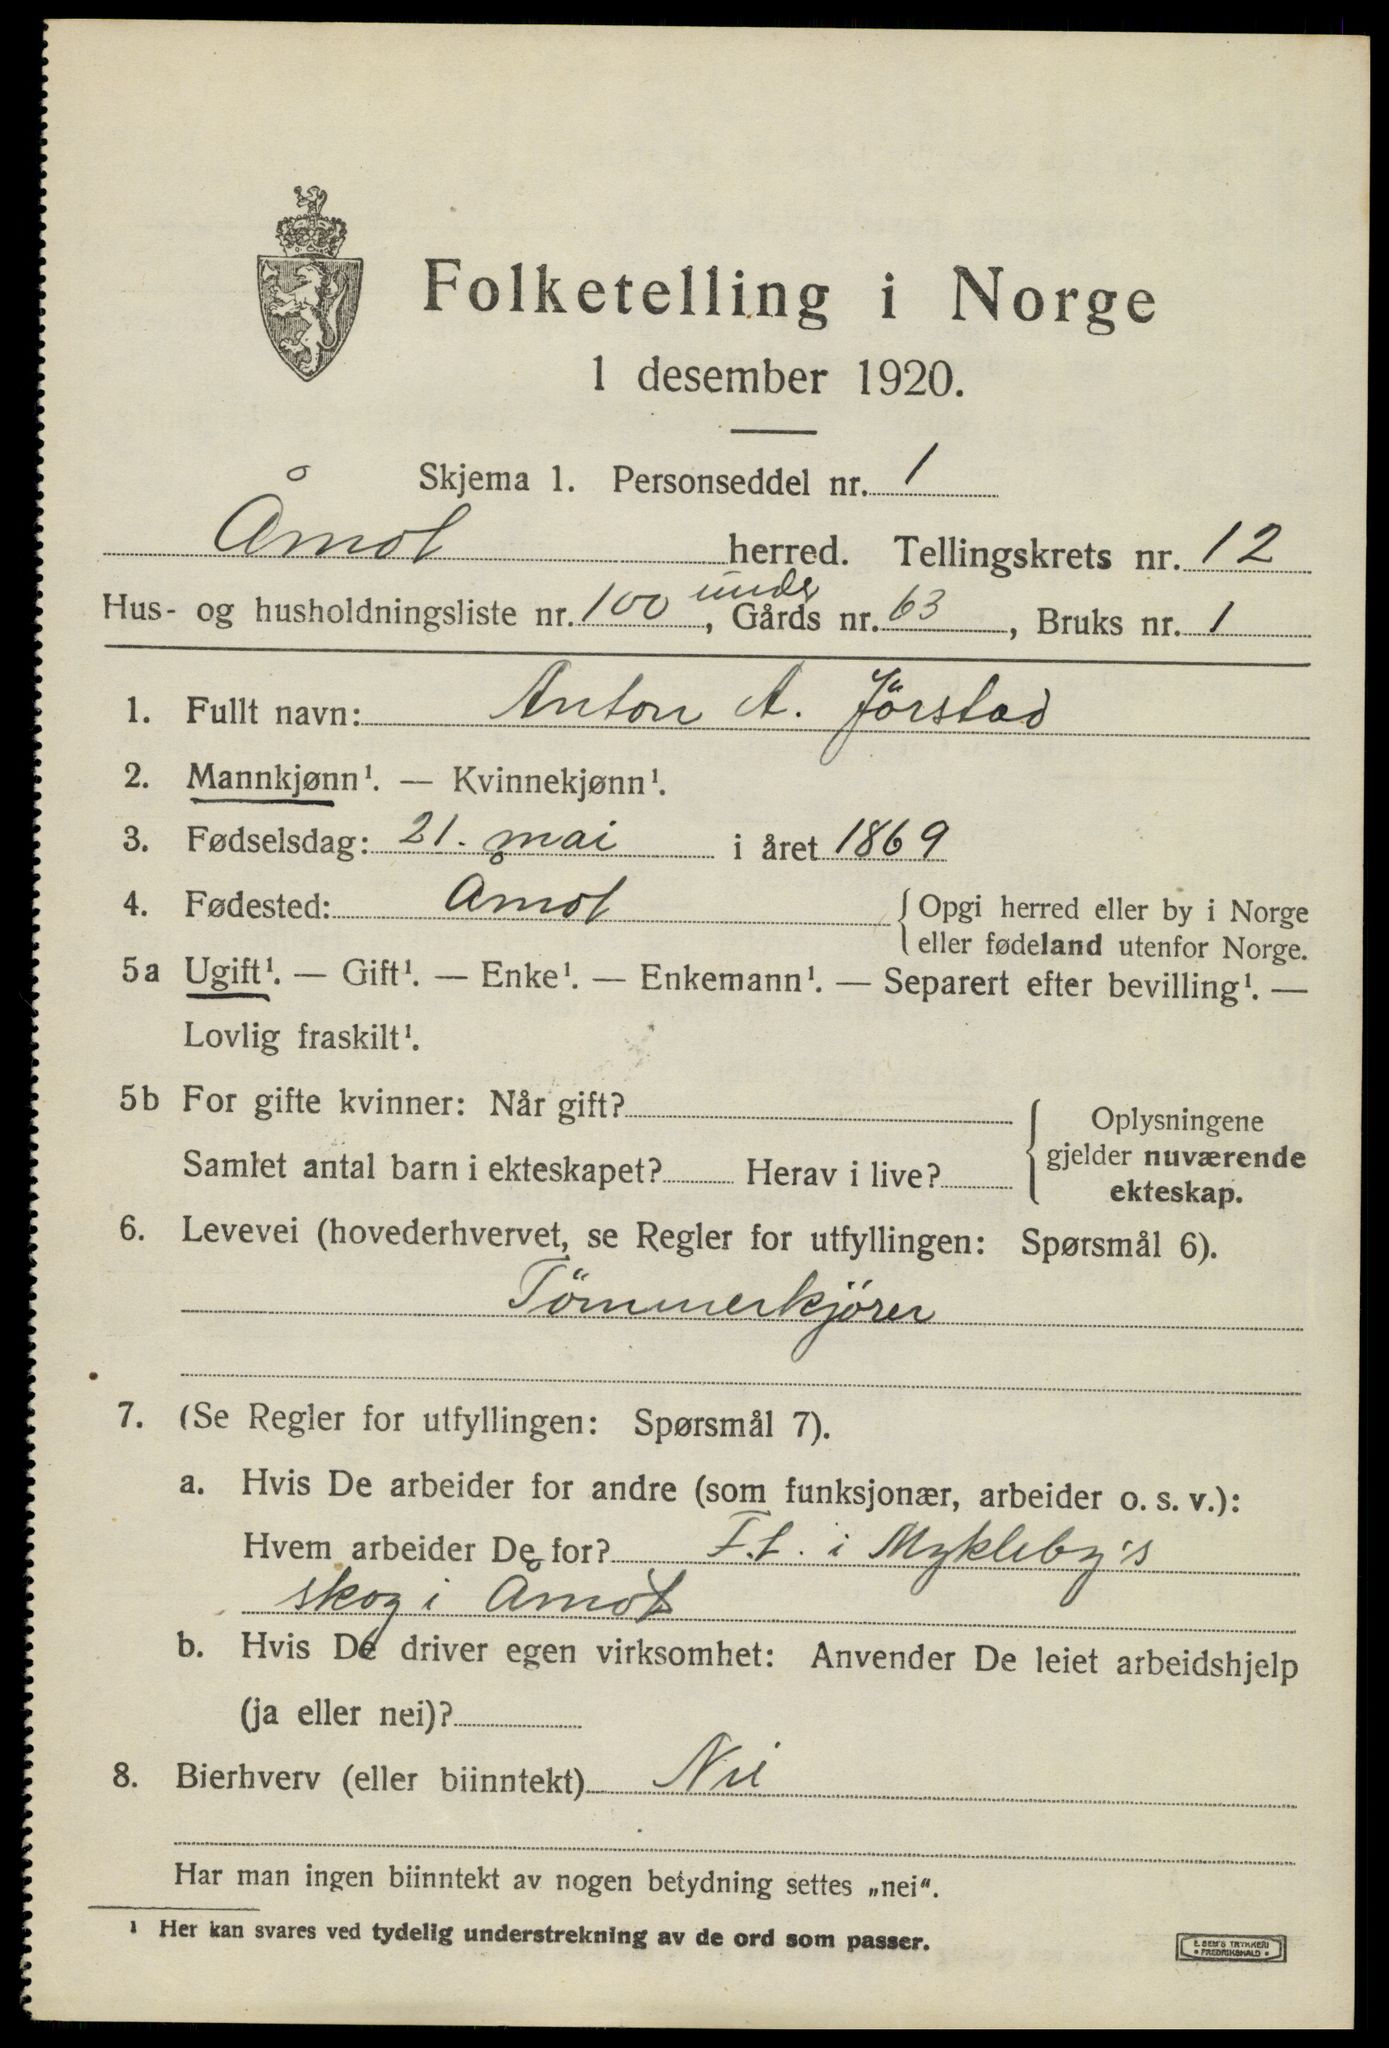 Folketelling i Norge
1 desember 1920.
Skjema 1. Personseddel nr. 1
Åmot herred. Tellingskrets nr. 12
Hus- og husholdningsliste nr. 100 under, Gårds nr. 63, Bruks nr. 1
1. Fullt navn: Anton A. Jörstad
2. Mannkjønn¹. — Kvinnekjønn¹.
3. Fødselsdag: 21. mai i året 1869
4. Fødested: Åmot { Opgi herred eller by i Norge
eller fødeland utenfor Norge.
5a Ugift¹. — Gift¹. — Enke¹. — Enkemann¹. — Separert efter bevilling¹. —
Lovlig fraskilt¹.
5b For gifte kvinner: Når gift?
Samlet antal barn i ekteskapet? Herav i live?
{ Oplysningene
gjelder nuværende
ekteskap.
6. Levevei (hovederhvervet, se Regler for utfyllingen: Spørsmål 6).
Tömmerkjörer
7. (Se Regler for utfyllingen: Spørsmål 7).
a. Hvis De arbeider for andre (som funksjonær, arbeider o. s. v.):
Hvem arbeider De for? F.t. i Mykleby's
skog i Åmot
b. Hvis De driver egen virksomhet: Anvender De leiet arbeidshjelp
(ja eller nei)?
8. Bierhverv (eller biinntekt) Nei
Har man ingen biinntekt av nogen betydning settes „nei“.
¹ Her kan svares ved tydelig understrekning av de ord som passer.
E. SEM'S TRYKKERI
• FREDRIKSHALD •